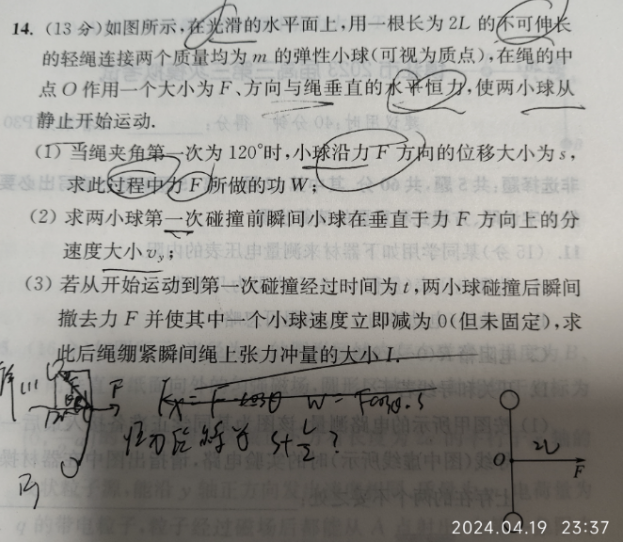 14. (13 分)如图所示,在光滑的水平面上,用一根长为 2L 的不可伸长
的轻绳连接两个质量均为 m 的弹性小球(可视为质点),在绳的中
点 O 作用一个大小为 F、方向与绳垂直的水平恒力,使两小球从
静止开始运动.
(1) 当绳夹角第一次为 120°时,小球沿力 F 方向的位移大小为 s,
求此过程中力 F 所做的功 W;
(2) 求两小球第一次碰撞前瞬间小球在垂直于力 F 方向上的分
速度大小 vy;
(3) 若从开始运动到第一次碰撞经过时间为 t,两小球碰撞后瞬间
撤去力 F 并使其中一个小球速度立即减为 0(但未固定),求
此后绳绷紧瞬间绳上张力冲量的大小 I.
F
W = Fcosθ·s
S+L/2?
O
2L
F
2024.04.19 23:37